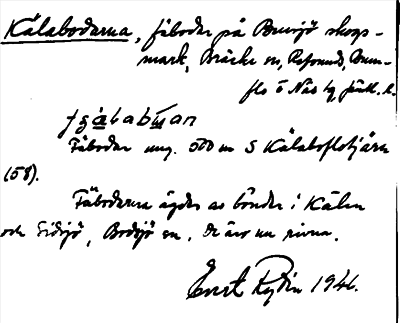 Kälabodarna, fäbodar på Bunsjö skogs-
mark, Bräcke sn, Refsund, Brun-
flo o Näs tg, Jämtl. l.
Fäbodar ung. 500 m S Kälaboflotjärn
(58).
Fäbodarna ägdes av bönder i Kälen
och Sidsjö, Bodsjö sn. De äro nu rivna.
Evert Rydin 1946.